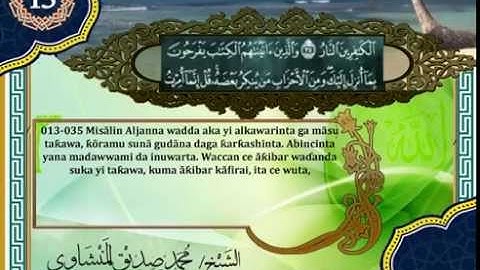 13
الْكَٰفِرِينَ النَّارُ ﴿٣٥﴾ وَالَّذِينَ ءَاتَيْنَٰهُمُ الْكِتَٰبَ يَفْرَحُونَ
بِمَا أُنزِلَ إِلَيْكَ وَمِنَ الْأَحْزَابِ مَن يُنكِرُ بَعْضَهُۥ قُلْ إِنَّمَا أُمِرْتُ
013-035 Misãlin Aljanna wadda aka yi alkawarinta ga mãsu
taƙawa, ƙõramu sunã gudãna daga ƙarƙashinta. Abincinta
yana madawwami da inuwarta. Waccan ce ãƙibar waɗanda
suka yi taƙawa, kuma ãƙibar kãfirai, ita ce wuta,
الشيخ/ محمد صديق المنشاوي